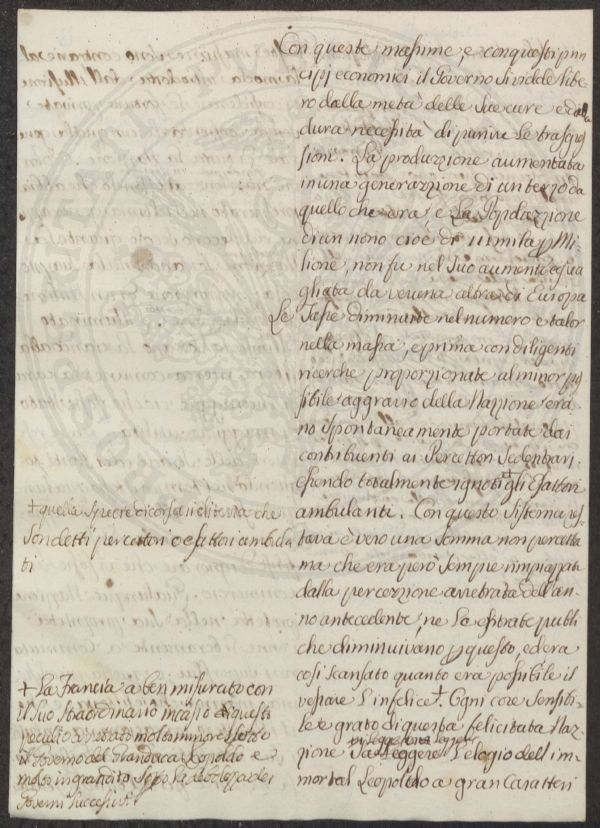 Con queste massime, e con questi prin
cipj economici il Governo si vidde libe
ro dalla metà delle sue cure e dalla
dura necessità di punire le trasgres
sioni. La produzzione aumentata
in una generazzione di un terzo da
quello che era, e La Popolazzione
di un nono cioè di mila p Mi
lione, non fu nel suo aumento egua
gliata da veruna altra di Europa
Le Tasse diminuite nel numero e talor
nella massa, e prima con diligenti
ricerche proporzionate al minor pos
sibile aggravio della Nazione era
no spontaneamente portate dai
contribuenti ai Percettori Sedentari
essendo totalmente ignoti + gli Esattori
ambulanti. Con questo Sistema res
tava è vero una somma non percetta
ma che era però sempre rimpiazzata
dalla percezzione arretrata dell'an
no antecedente, ne La entrate publi
che diminuivano p questo, ed era
così scansato quanto era possibile il
vessare L'infelice +. Ogni core sensibi
le e grato di questa felicitata Naz
zione Leggere L'elogio dell'im
mortal Leopoldo a gran Caratteri
+ quella specie di corsari di terra che
son detti percettori o esattori ambula
ti
+ La Francia à ben misurato con
il suo straordinario incasso di questi
peculio molto minore sotto
il Governo del Granduca Leopoldo e
molto ingrandito dopo La debolezza dei
Governi successivi.